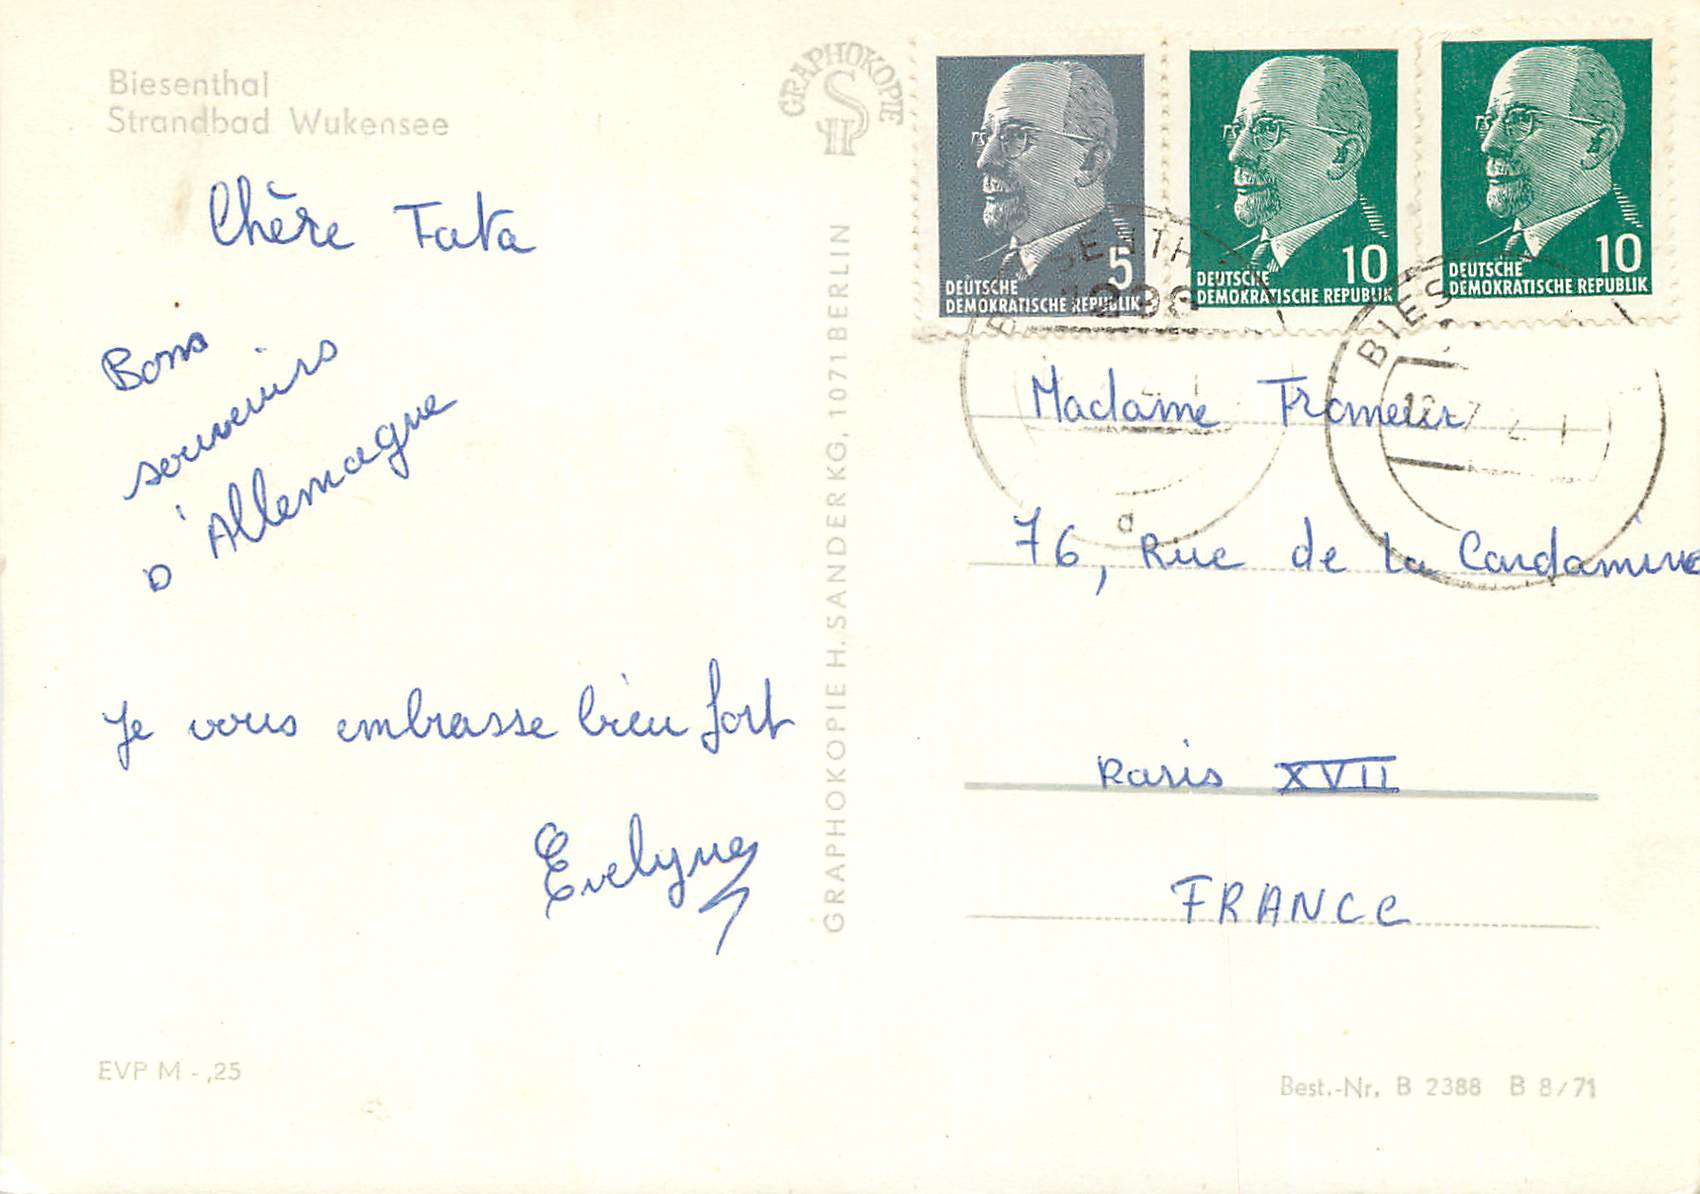 Biesenthal
Strandbad Wukensee
Chère Tata
Bons
souvenirs
d'Allemagne
Je vous embrasse bien fort
Evelyne
EVP M -,25
GRAPHOKOPIE
GRAPHOKOPIE H. SANDER KG, 1071 BERLIN
5
DEUTSCHE
DEMOKRATISCHE REPUBLIK
10
DEUTSCHE
DEMOKRATISCHE REPUBLIK
10
DEUTSCHE
DEMOKRATISCHE REPUBLIK
Madame
76, Rue de la Cardamine
Paris XVII
FRANCE
Best.-Nr. B 2388 B 8/71